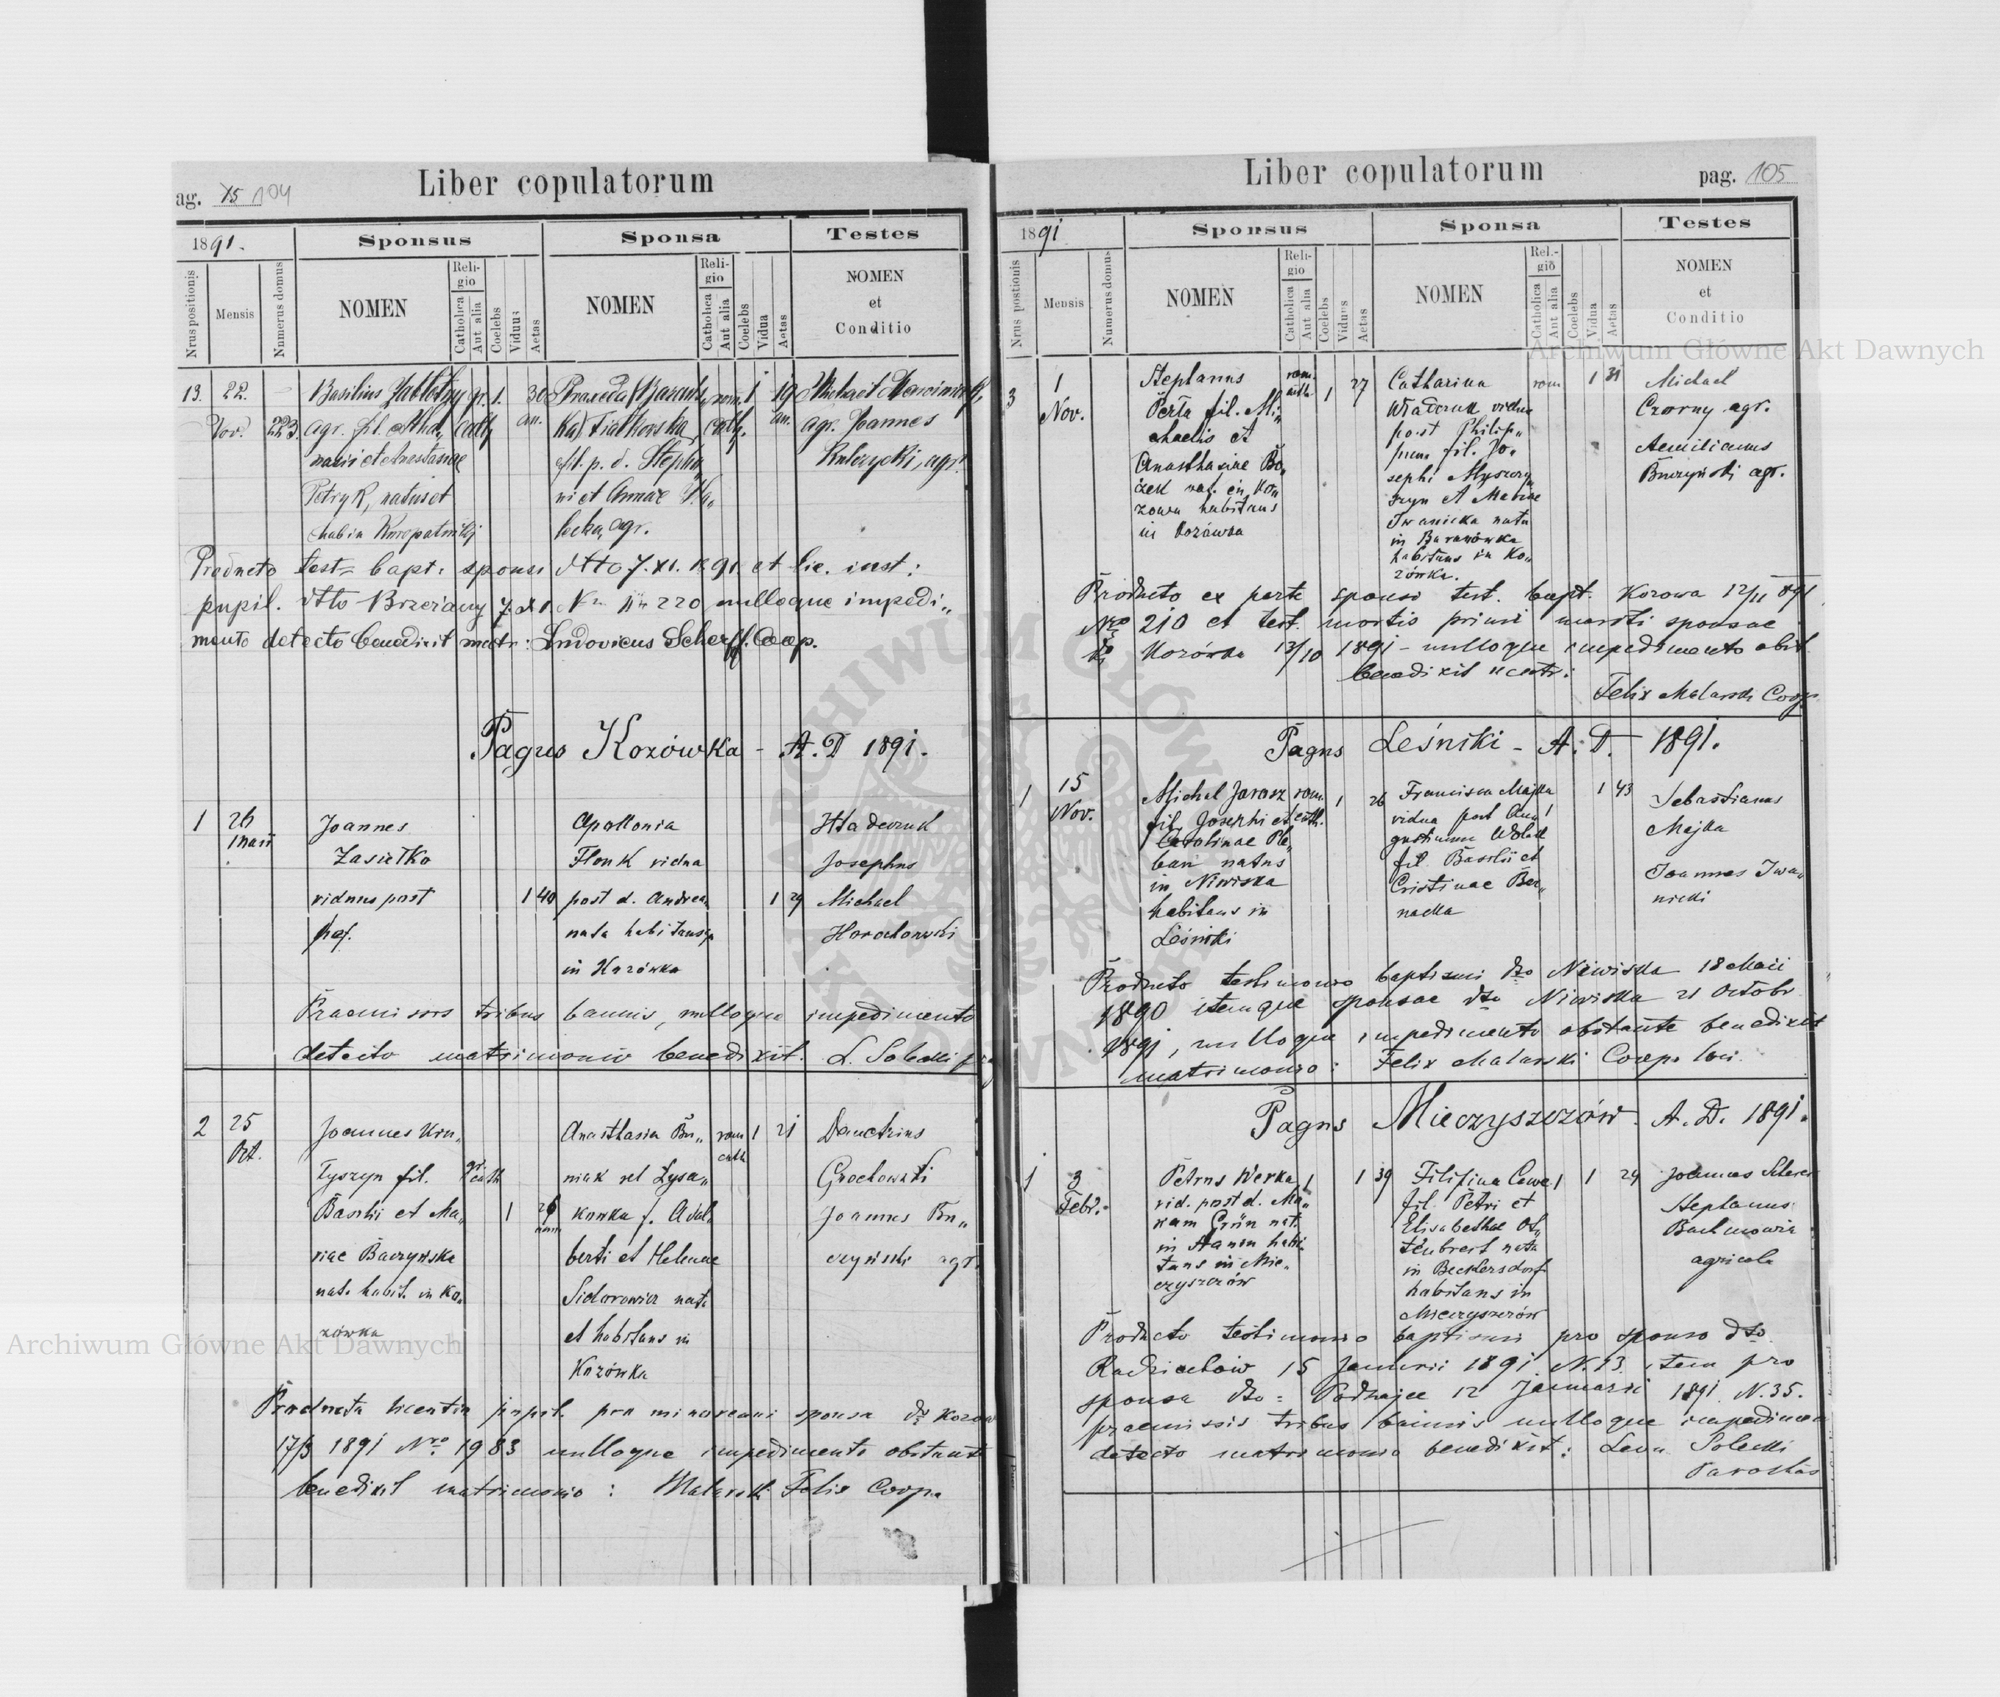 Liber copulatorum
ag. 75 104
1891.
Sponsus
Sponsa
Testes
Nrus positionis
Mensis
Numerus domus
NOMEN
Religio
Catholica
Aut alia
Coelebs
Viduus
Aetas
NOMEN
Religio
Catholica
Aut alia
Coelebs
Vidua
Aetas
NOMEN
et
Conditio
13. 22. Nov. 223.
Basilius Jabłotny gr. 1. 30
agr. fil. cath. an.
et Anastasiae
Petryk, natus et
Praxeda rom. 1 19
Fiałkowska cath. an.
fil. p. d. Stepha„
ni et Annae
agr.
Michael
agr. Joannes
Kulczycki, agr.
Producto test= bapt. sponsi dtto 7. XI. 1891 et lic. inst:
pupil. dtto Brzeżany 7. XI. 220 nulloque impedi„
mento detecto benedixit matr: Ludovicus Scherff. Coop.
Pagus Kozówka - A. D 1891.
1 26
Joannes
Zasietko
viduus post
1 40
Apollonia
Flonk vidua
post d. Andrea
nata habitansq
in Kozówka
1 29
Hładczuk
Josephus
Michael
Horochowski
Praemissis tribus bannis, nulloque impedimento
detecto matrimonio benedixit. L. Solecki
2 25
Oct.
Joannes Kru„
tyszyn fil.
Basilii et Ma„
riae Baczyńska
nat. habit. in Ko„
zówka
gr. cath
1 26
Anasthasia Bu„
niak vel Łysa„
kowka f. Adal„
berti et Helenae
Sidorowicz nat.
et habitans in
Kozówka
rom cath
1 21
Demetrius
Grochowski
Joannes Bu„
czyński agr.
Producta licentia pupil. pro minorenni sponsa Kozowa
17/3 1891 Nro 1983 nulloque impedimento obstante
benedixit matrimonio: Malarski Felix Coop.
Liber copulatorum
pag. 105
1891
Sponsus
Sponsa
Testes
Nrus postionis
Mensis
Numerus domus
NOMEN
Religio
Catholica
Aut alia
Coelebs
Viduus
Aetas
NOMEN
Rel.-giō
Catholica
Aut alia
Coelebs
Vidua
Aetas
NOMEN
et
Conditio
3 1
Nov.
Stephanus
Perta fil. Mi„
chaelis et
Anasthasiae Bo„
zek nat. in Ko„
zowa habitans
in Kozówka
rom. cath 1 27
Catharina
Władczuk vidua
post Philip„
pum fil. Jo„
sephi Myszczy„
szyn et Mariae
Iwanicka nata
in Baranówka
habitans in Ko„
zówka.
rom 1 31
Michael
Czorny agr.
Aemilianus
Buczyński agr.
Producto ex parte sponsi test. bapt. Kozowa 12/II 891
Nro 210 et test. mortis primi mariti sponsae
Kozówka 13/10 1891 - nulloque impedimento obst.
benedixit matr:
Felix Malarski Coop.
Pagus Leśniki - A. D. 1891.
1 15
Nov.
Michal Jarosz
fil. Josephi et
Carolinae Ple„
ban natus
in Niwiska
habitans in
Leśniki
rom. cath. 1 26
Francisca Majka
vidua post Au„
gustinum Wołek
fil. Basilii et
Cristinae Ber„
nacka
1 43
Sebastianus
Majka
Joannes Iwa„
nicki
Producto testimonio baptismi dto Niwiska 18 Maii
1890 itemque sponsae dto Niwiska 21 Octobr
1891, nulloque impedimento obstante benedixit
matrimonio: Felix Malarski Coop. loci.
Pagus Mieczyszczów. A. D. 1891.
1 3
Febr.
Petrus Werka
vid. post d. Ma„
riam Grün nat.
in Stanin habi„
tans in Mie„
czyszczów
1 1 39
Filipina
fil. Petri et
Elisabethae Ol„
tenbreit nata
in Beckersdorf
habitans in
Mieczyszczów
1 1 29
Joannes
Stephanus
Bachmowicz
agricola
Producto testimonio baptismi pro sponso dto
Radziechów 15 Januarii 1891 N. 13. item pro
sponsa dto = Podhajce 12 Januarii 1891 N. 35.
praemissis tribus bannis nulloque impedimento
detecto matrimonio benedixit: Leon Solecki
Parochus
Archiwum Główne Akt Dawnych
Archiwum Główne Akt Dawnych
ARCHIWUM GŁÓWNE AKT DAWNYCH